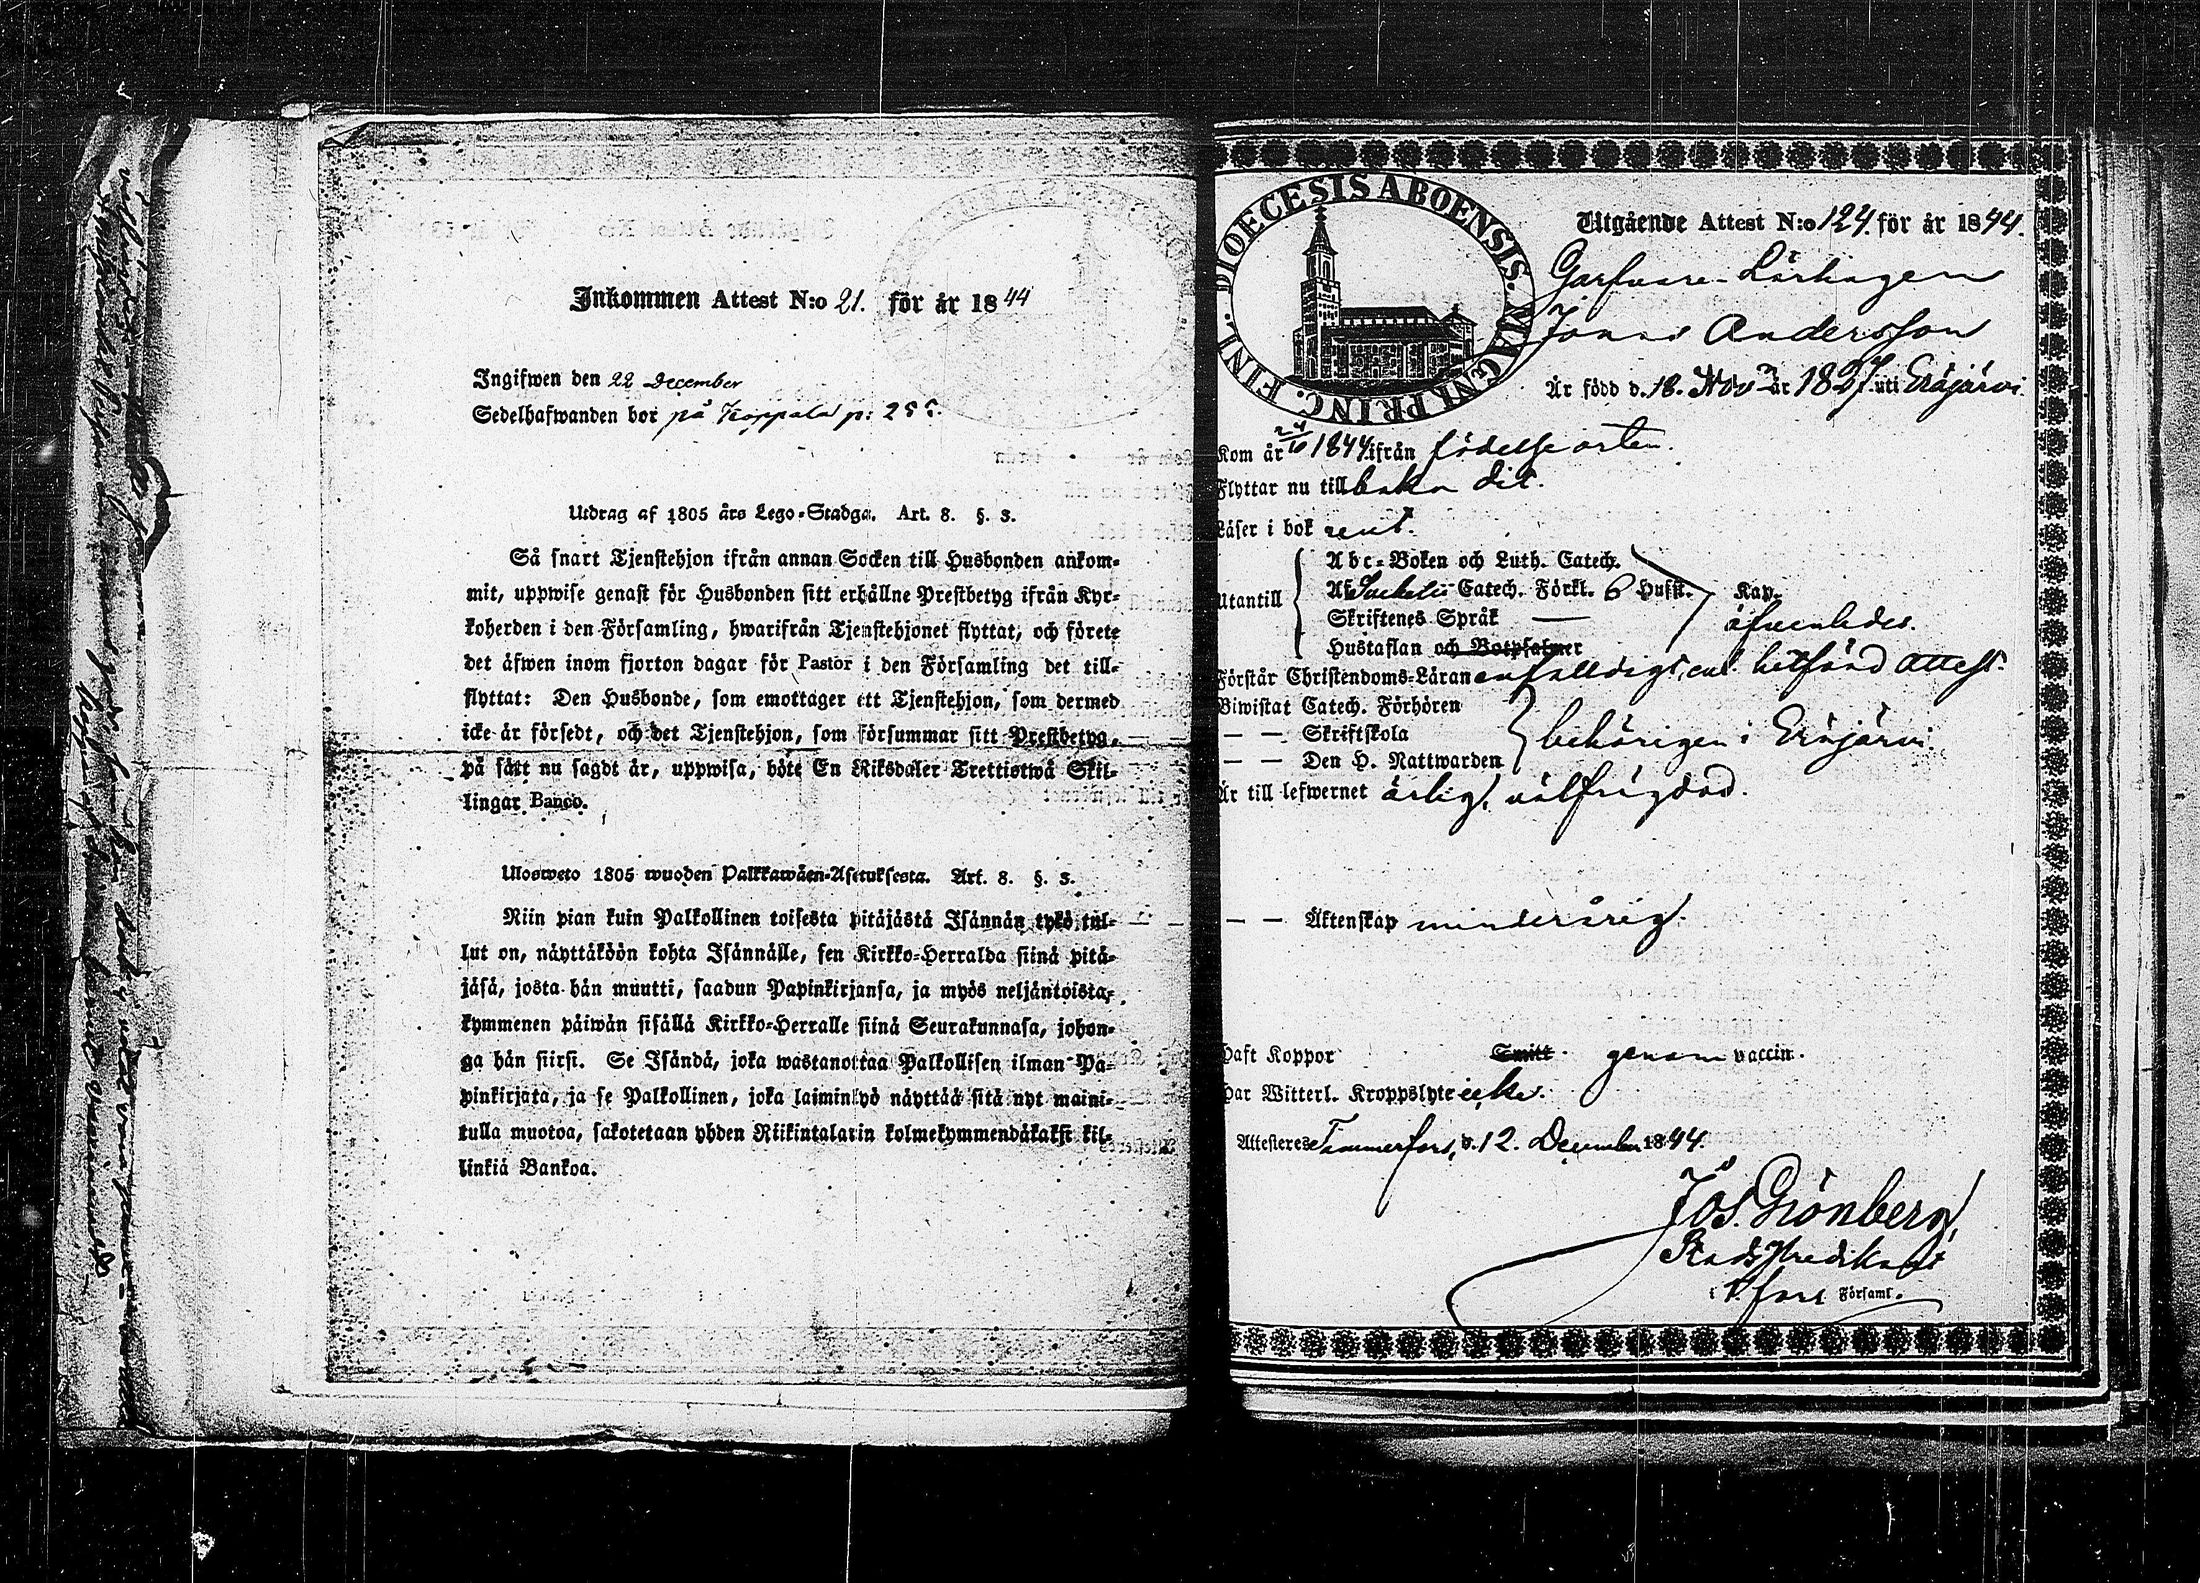 Inkommen Attest N:o 21. för år 1844
Ingifwen den 22 December
Sedelhafwanden bor på Koppala p: 255.
Utdrag af 1805 års Lego-Stadga. Art. 8. §. 3.
Så snart Tjenstehjon ifrån annan Socken till Husbonden ankom-
mit, uppwise genast för Husbonden sitt erhållne Prestbetyg ifrån Kyr-
koherden i den Församling, hwarifrån Tjenstehjonet flyttat, och förete
det äfwen inom fjorton dagar för Pastor i den Församling det till-
flyttat: Den Husbonde, som emottager ett Tjenstehjon, som dermed
icke är försedt, och det Tjenstehjon, som försummar sitt Prestbetyg,
på sätt nu sagdt är, uppwisa, böte En Riksdaler Trettiotwå Skil-
lingar Banco.
Ulosweto 1805 wuoden Palkkawäen-Asetuksesta. Art. 8. §. 3.
Niin pian kuin Palkollinen toisesta pitäjästä Isännän tykö tul-
lut on, näyttäköön kohta Isännälle, sen Kirkko-Herralda siinä pitä-
jäsä, josta hän muutti, saadun Papinkirjansa, ja myös neljäntoista-
kymmenen päiwän sisällä Kirkko-Herralle siinä Seurakunnasa, johon-
ga hän siirsi. Se Isändä, joka wastanottaa Palkollisen ilman Pa-
pinkirjata, ja se Palkollinen, joka laiminlyö näyttää sitä nyt maini-
tulla muotoa, sakotetaan yhden Riikintalarin kolmekymmendäkaksi kil-
linkiä Bankoa.
DIOECESIS ABOENSIS. MAGNI PRINC. FINL.
Utgående Attest N:o 124. för år 1844.
Garfvare-Lärlingen
Jonas Andersson
Är född d. 18. Nov. år 1827. uti Eräjärvi.
Kom år 24/10 1844. ifrån födelseorten.
Flyttar nu tillbaka dit.
Läser i bok rent.
Utantill
Abc-Boken och Luth. Catech.
Af Catech. Förkl. 6 Hufst. Kap.
Skriftenes Språk —
äfvenledes.
Hustaflan och Botpsalmer
Förstår Christendoms-Läran enfaldigt, enl. hitförd attest.
Biwistat Catech. Förhören
— — Skriftskola
behörigen i Eräjärvi.
— — Den H. Nattwarden
Är till lefwernet ärlig, välfrägdad.
— — Äktenskap minderårig.
Haft Koppor Smitt. genom vaccin.
Har Witterl. Kroppslyte icke.
Attesteres Tammerfors, d. 12. December 1844.
Jos. Grönberg,
StadsPredikant
i T.fors Församl.